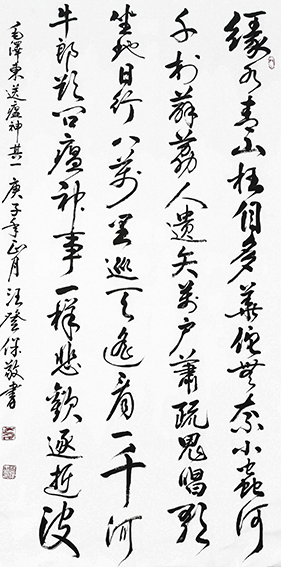 綠水青山枉自多華佗無奈小蟲何
千村薜荔人遺矢萬戶蕭疏鬼唱歌
坐地日行八萬里巡天遙看一千河
牛郎欲問瘟神事一樣悲歡逐逝波
毛澤東送瘟神其一 庚子年正月汪登保敬書